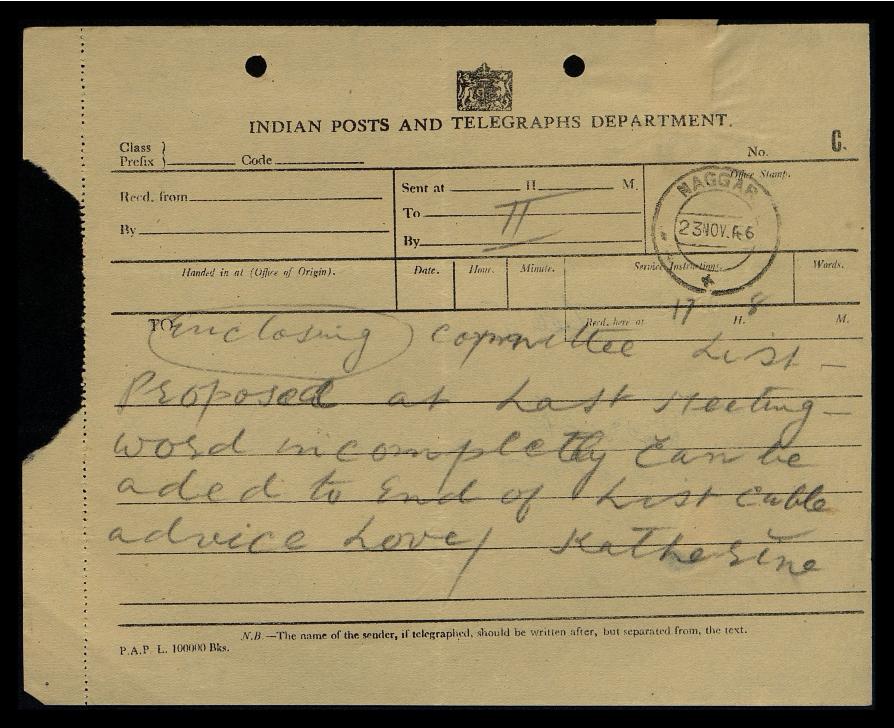 INDIAN POSTS AND TELEGRAPHS DEPARTMENT.
C.
Class }
Prefix } Code
No.
Recd. from
By
Sent at H. M.
To
By
II
Office Stamp.
NAGGAR
23 NOV. 46
Handed in at (Office of Origin).
Date.
Hour.
Minute.
Service Instructions.
Words.
TO
Recd. here at 17 H. 8 M.
Enclosing committee List –
Proposed at Last Meeting –
word incompletly Can be
aded to End of List cable
advice Love / Katherine
N.B.—The name of the sender, if telegraphed, should be written after, but separated from, the text.
P.A.P. L. 100000 Bks.